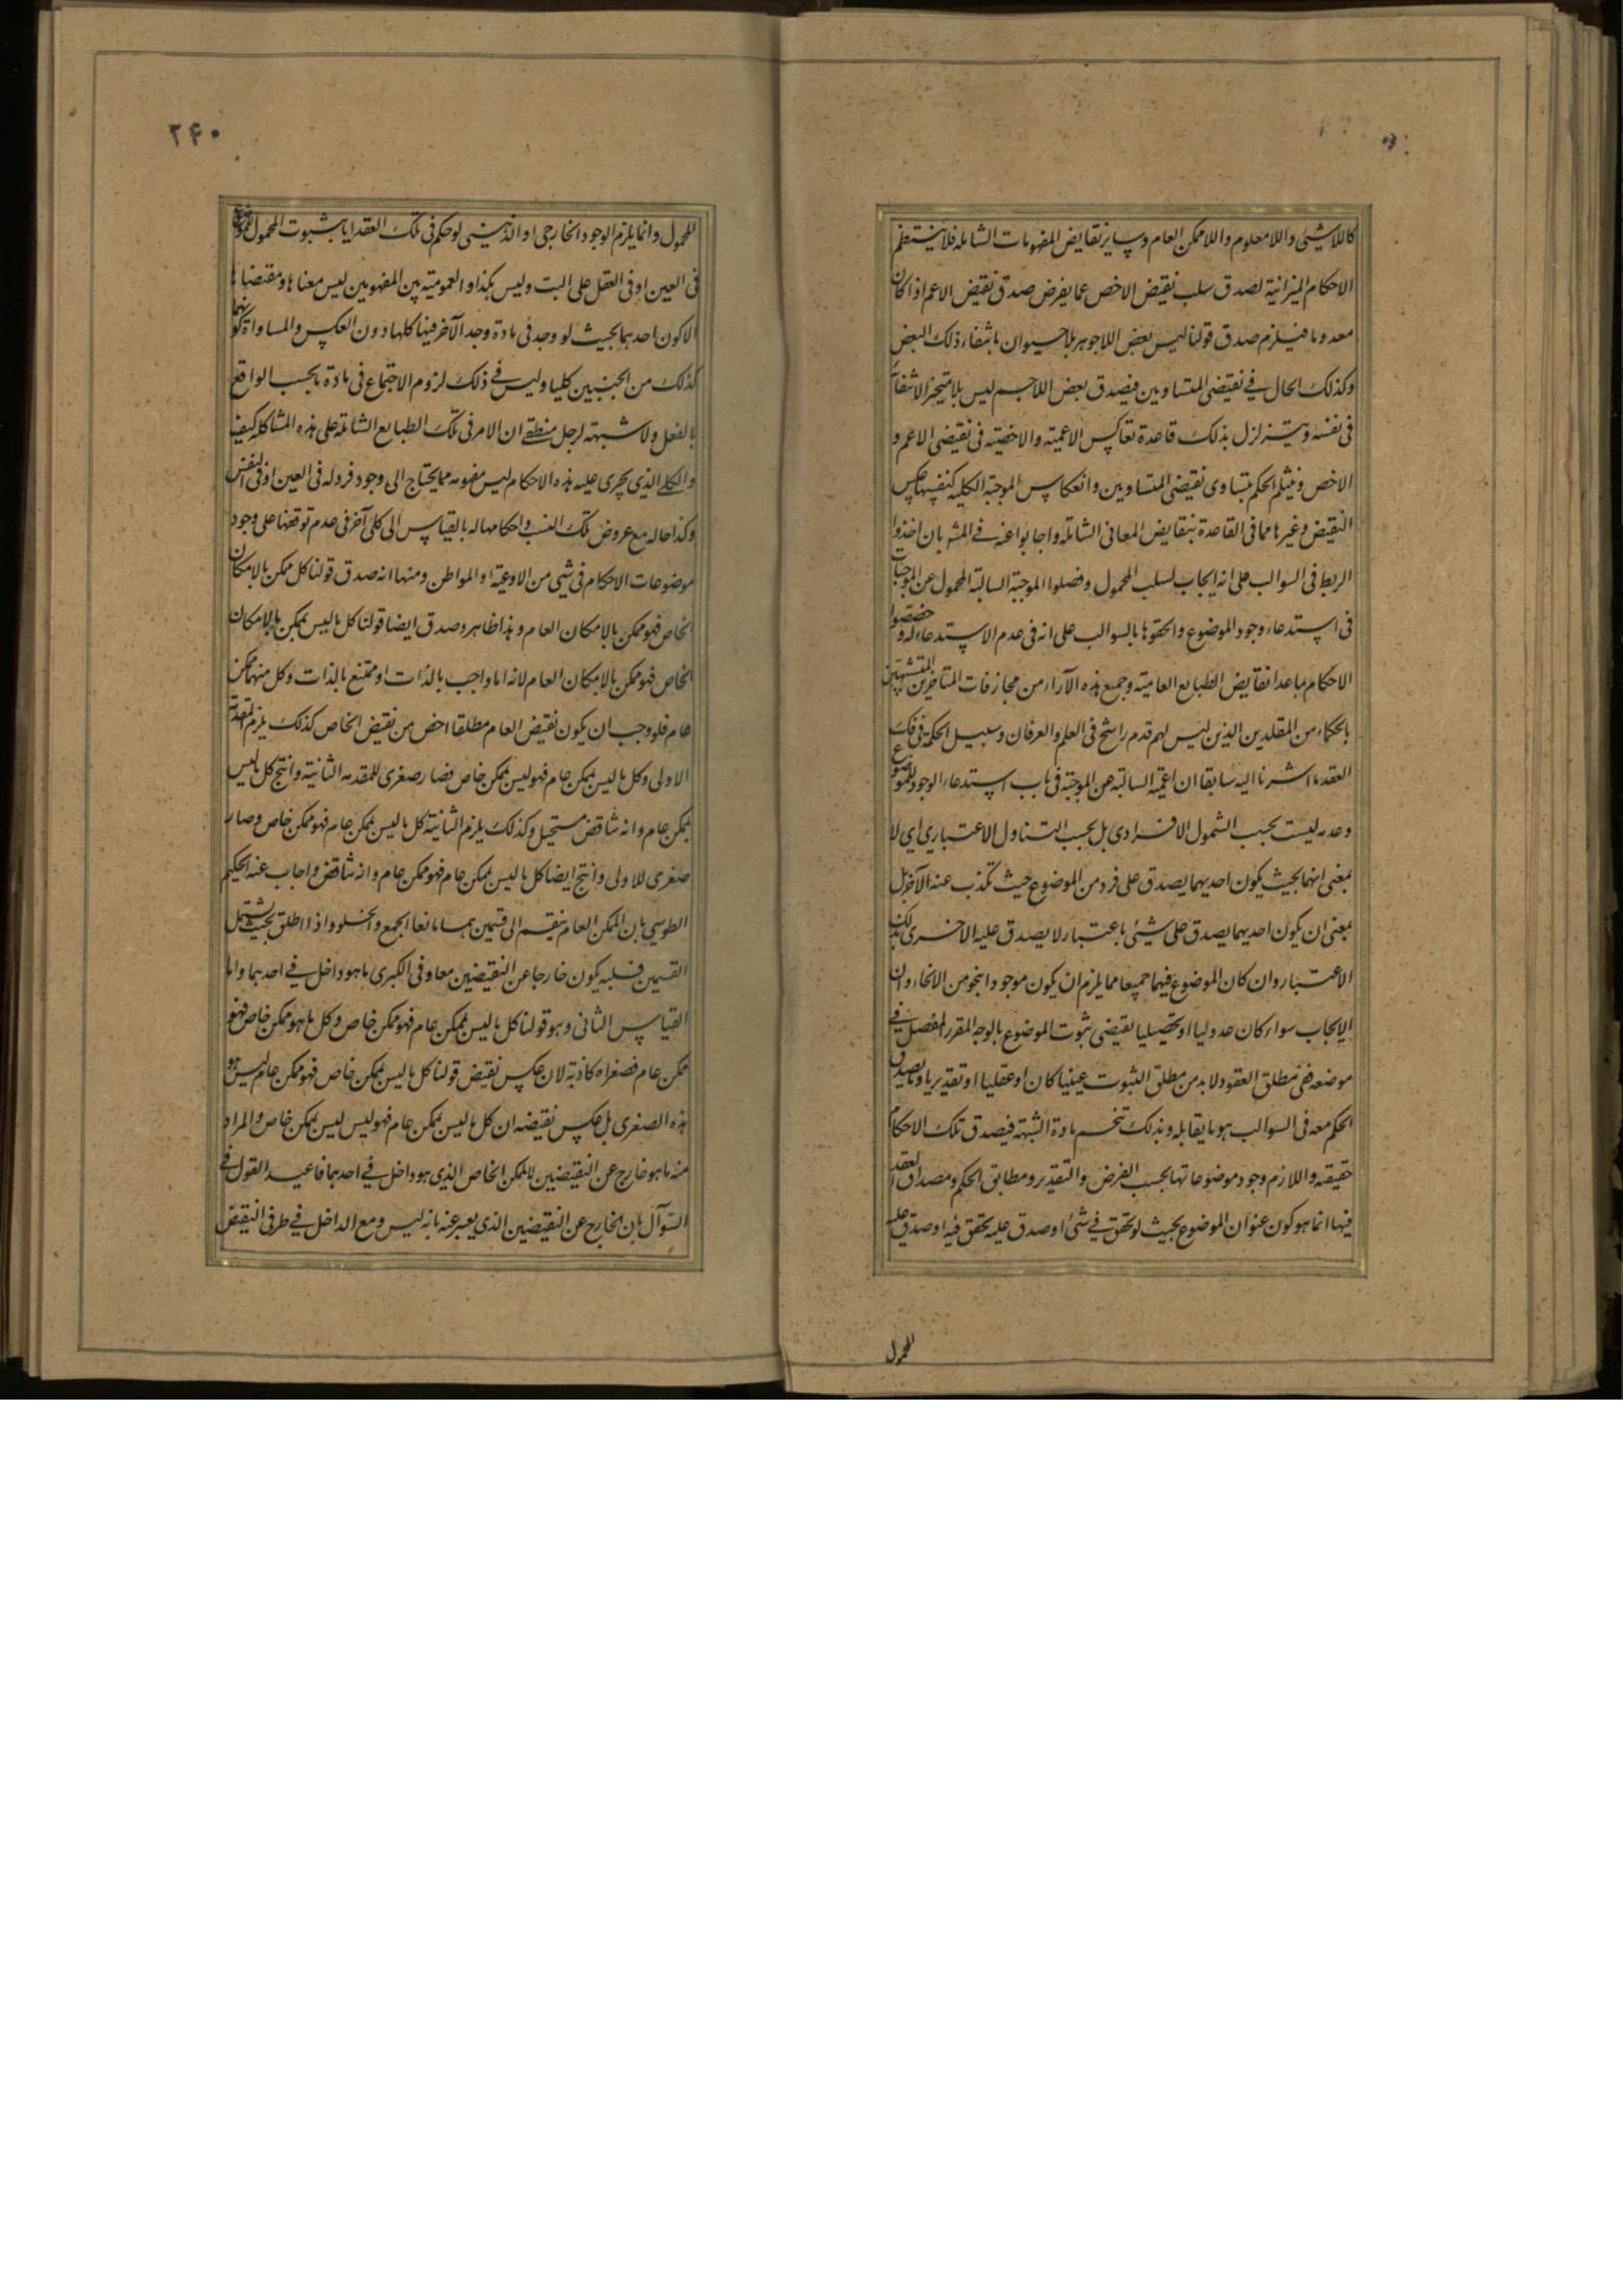 كاللاشيئ واللامعلوم واللاممكن العام وساير نقايض المفهومات الشامله فلا ينتظم
الاحكام الميزانية لصدق سلب نقيض الاخص عما يفرض صدق نقيض الاعم اذا كان
معدوما فيلزم صدق قولنا ليس بعض اللاجوهر بلاحيوان بانتفاء ذلك البعض
وكذلك الحال في نقيضى المتساويين فيصدق بعض اللاجسم ليس بلامتحيز لانتفائه
فى نفسه ويتزلزل بذلك قاعدة تعاكس الاعمية والاخصية فى نقيضى الاعم و
الاخص وينثلم الحكم بتساوى نقيضى المتساويين وانعكاس الموجبة الكلية كنفسها عكس
النقيض وغيرها مما فى القاعدة بنقايض المعانى الشاملة واجابوا عنه في المشهور بان اخذوا
الربط فى السوالب على انه ايجاب لسلب المحمول وفصلوا الموجبة السالبة المحمول عن الموجبات
فى استدعاء وجود الموضوع والحقوها بالسوالب على انه فى عدم الاستدعاء له وخصصوا
الاحكام بما عدا نقايض الطبايع العامية وجميع هذه الآراء من مجازفات المتاخرين المتشبهين
بالحكماء من المقلدين الذين ليس لهم قدم راسخ فى العلم والعرفان وسبيل الحكمة فى فك
العقد ما اشرنا اليه سابقا ان اعمية السالبة عن الموجبة فى باب استدعاء الوجود للموضوع
وعدمه ليست بحسب الشمول الافرادى بل بحسب التناول الاعتبارى اى لا
بمعنى انهما بحيث يكون احديهما يصدق على فرد من الموضوع حيث تكذب عنه الآخر بل
بمعنى ان يكون احديهما يصدق على شيئ باعتبار لا يصدق عليه الاخرى بذلك
الاعتبار وان كان الموضوع فيهما جميعا مما يلزم ان يكون موجودا بنحو من الانحاء وان
الايجاب سواء كان عدوليا او تحصيليا يقتضى ثبوت الموضوع بالوجه المقرر المفصل في
موضعه ففى مطلق العقود لابد من مطلق الثبوت عينيا كان او عقليا او تقديريا وما يصدق
الحكم معه فى السوالب هو ما يقابله وبذلك تنحسم مادة الشبهة فيصدق تلك الاحكام
حقيقته واللازم وجود موضوعاتها بحسب الفرض والتقدير ومطابق الحكم ومصداق العقد
فيها انما هو كون عنوان الموضوع بحيث لو تحقق في شئ او صدق عليه تحقق فيه او صدق عليه
المحمول
٢٤٠
المحمول وانما يلزم الوجود الخارجى او الذهنى لو حكم فى تلك العقد ايا بثبوت المحمول للموضوع
فى العين او فى العقل على البت وليس هكذا والعمومية بين المفهومين ليس معناها ومقتضاها
الا كون احدهما بحيث لو وجد فى مادة وجد الآخر فيها كلها دون العكس والمساواة كونهما
كذلك من الجنبين كليا وليس في ذلك لزوم الاجتماع فى مادة بحسب الواقع
بالفعل ولا شبهة لرجل منطقي ان الامر فى تلك الطبايع الشاملة على هذه المشاكله كيف
والكلى الذى يجرى عليه هذه الاحكام ليس مفهومه مما يحتاج الى وجود فرد له فى العين او فى النفس
وكذا حاله مع عروض تلك النسب واحكامها له بالقياس الى كلى آخر فى عدم توقفها على وجود
موضوعات الاحكام فى شئ من الاوعية او المواطن ومنها انه صدق قولنا كل ممكن بالامكان
الخاص فهو ممكن بالامكان العام وهذا ظاهر وصدق ايضا قولنا كل ما ليس بممكن بالامكان
الخاص فهو ممكن بالامكان العام لانه اما واجب بالذات او ممتنع بالذات وكل منهما ممكن
عام فلو وجب ان يكون نقيض العام مطلقا اخص من نقيض الخاص كذلك يلزم المقدمة
الاولى وكل ما ليس بممكن عام فهو ليس بممكن خاص فصار صغرى للمقدمه الثانية وانتج كل ما ليس
بممكن عام وانه تناقض مستحيل وكذلك يلزم الثانية كل ما ليس بممكن عام فهو ممكن خاص وصار
صغرى للاولى وانتج ايضا كل ما ليس بممكن عام فهو ممكن عام وانه تناقض واجاب عنه الحكيم
الطوسى بان الممكن العام ينقسم الى قسمين هما مانعا الجمع والخلو واذا اطلق بحيث يشتمل
القسمين فسلبه يكون خارجا عن النقيضين معا وفى الكبرى ما هو داخل في احدهما واما
القياس الثانى وهو قولنا كل ما ليس بممكن عام فهو ممكن خاص وكل ما هو ممكن خاص فهو
ممكن عام فصغراه كاذبة لان عكس نقيض قولنا كل ما ليس بممكن خاص فهو ممكن عام ليس هو
هذه الصغرى بل عكس نقيضه ان كل ما ليس بممكن عام فهو ليس ليس بممكن خاص والمراد
منه ما هو خارج عن النقيضين لا الممكن الخاص الذى هو داخل في احدهما فاعيد القول في
السؤال بان الخارج عن النقيضين الذى يعبر عنه بانه ليس ومع الداخل في طرفى النقيض